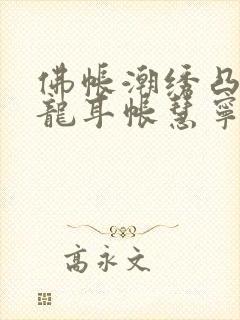 佛帐潮绣凸
龍耳帐慧寧
高永文